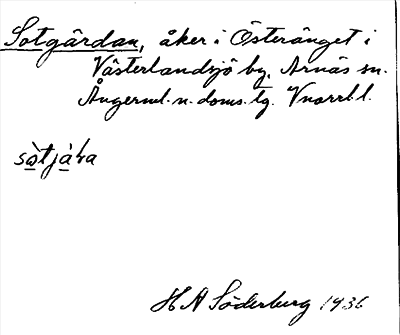 Sotgårdan, åker i Österänget i
Västerlandsjö by, Arnäs sn.
Ångerml. n. doms. tg. Vnorrl. l.
H A Söderburg 1936